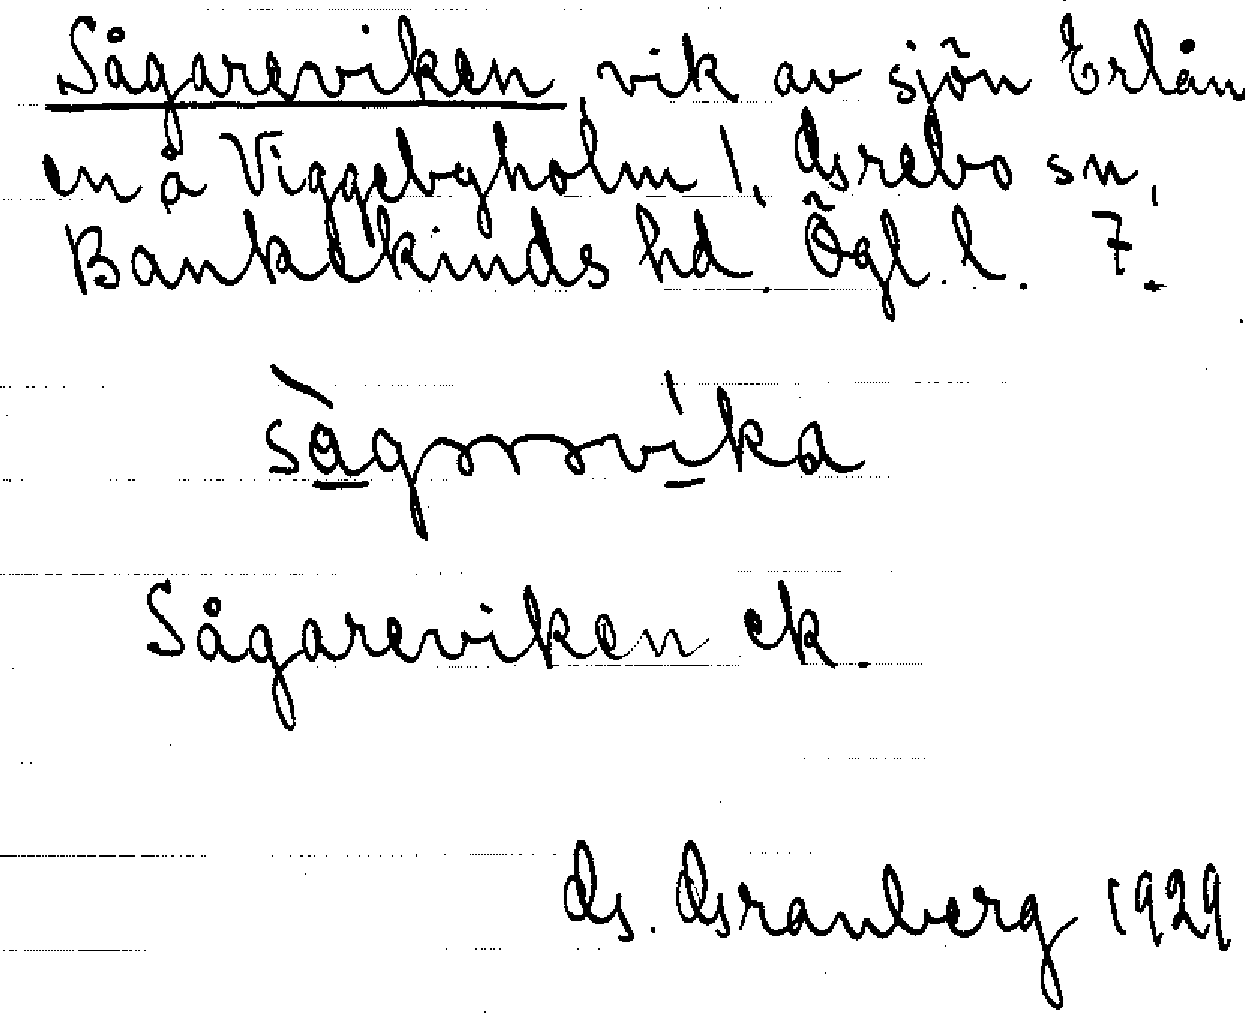 Sågareviken, vik av sjön Erlån
en å Viggebyholm 1, Grebo sn,
Bankekinds hd. Ögl. l. 7.
Sågareviken ek.
G. Granberg 1929